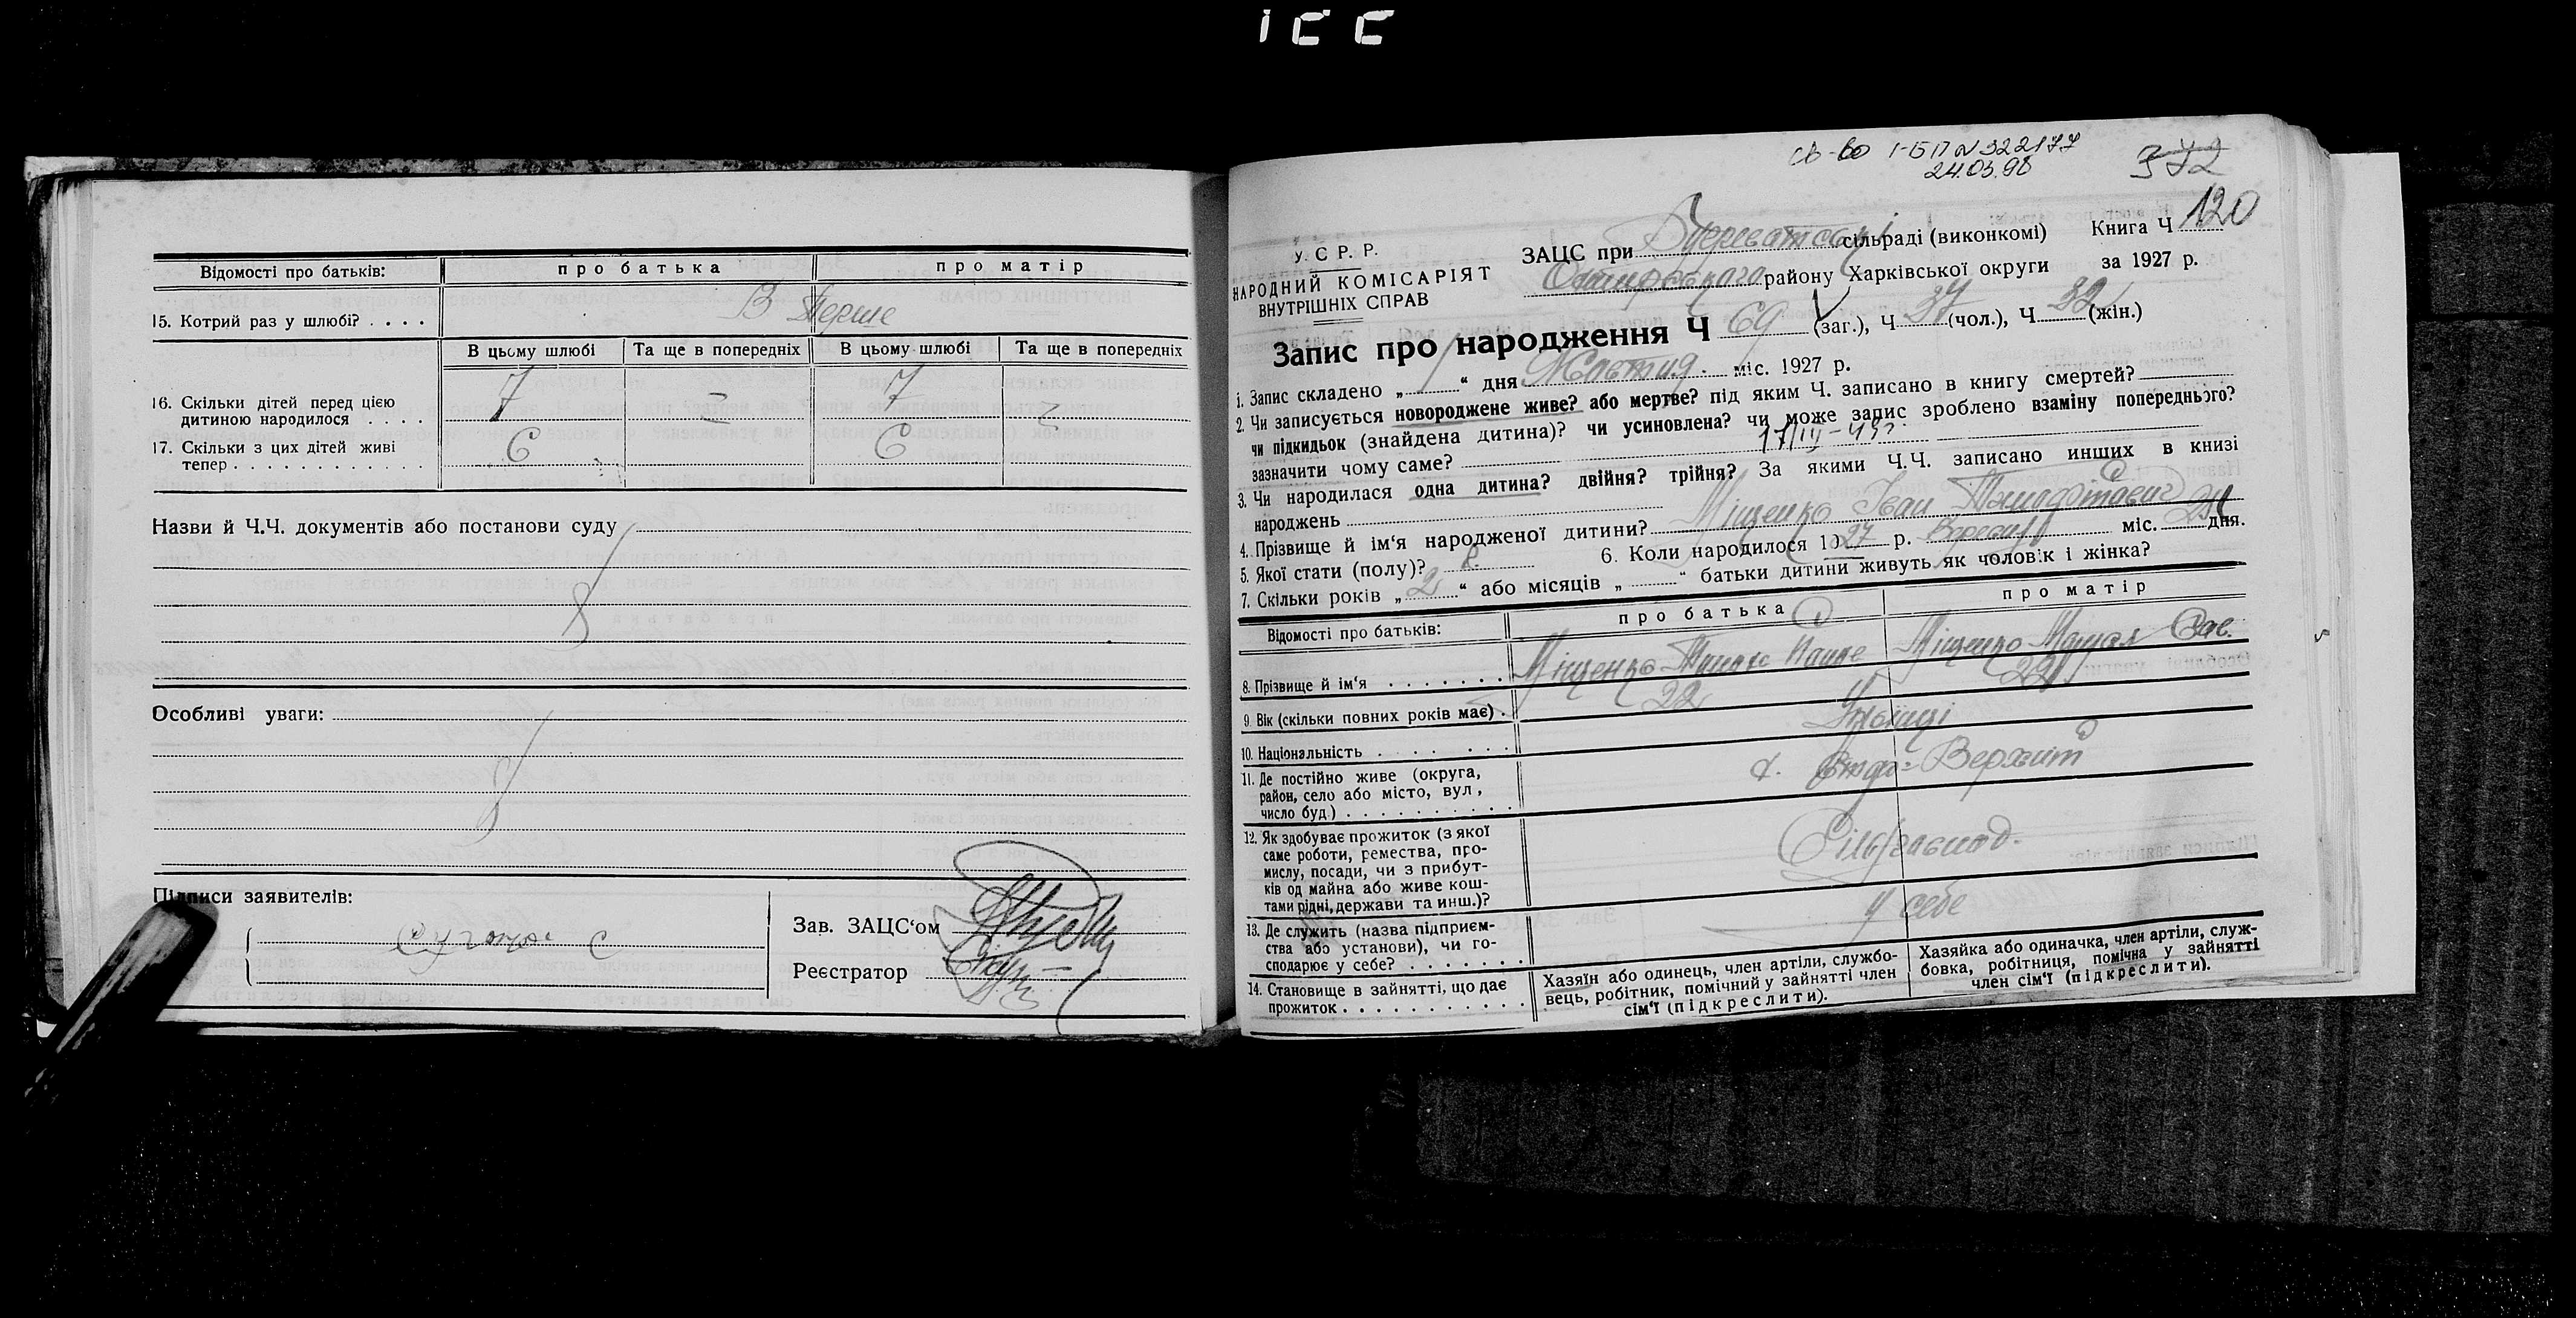 Відомості про батьків: про батька про матір
15. Котрий раз у шлюбі? . . . . В Перше
В цьому шлюбі Та ще в попередніх В цьому шлюбі Та ще в попередніх
16. Скільки дітей перед цією
дитиною народилося . . . . 7 — 7 —
17. Скільки з цих дітей живі
тепер . . . . . . . . . . . . . 6 6
Назви й Ч.Ч. документів або постанови суду
Особливі уваги:
Підписи заявителів:
Зав. ЗАЦС‘ом
Реєстратор
I-БП № 322177
24.03.98
372
120
У. С Р. Р.
НАРОДНИЙ КОМІСАРІЯТ
ВНУТРІШНІХ СПРАВ
ЗАЦС при сільраді (виконкомі) Книга Ч
району Харківської округи за 1927 р.
Запис про народження Ч 69 (заг.), Ч 37 (чол.), Ч 32 (жін.)
1. Запис складено „ 1 “ дня Жовтня міс. 1927 р.
2. Чи записується новороджене живе? або мертве? під яким Ч. записано в книгу смертей?
чи підкидьок (знайдена дитина)? чи усиновлена? чи може запис зроблено взаміну попереднього?
зазначити чому саме? 17/III-43г
3. Чи народилася одна дитина? двійня? трійня? За якими Ч.Ч. записано инших в книзі
народжень
4. Прізвище й ім‘я народженої дитини? Міщенко Іван Тимофітович
5. Якої стати (полу)? 6. Коли народилося 1927 р. Вересня міс. дня.
7. Скільки років „ 2 “ або місяців „ “ батьки дитини живуть як чоловік і жінка?
Відомості про батьків: про батька про матір
8. Прізвище й ім‘я . . . . . . . Міщенко Міщенко
9. Вік (скільки повних років має) . 22 22
10. Національність . . . . . . . Українці
11. Де постійно живе (округа,
район, село або місто, вул,
число буд) . . . . . . . . . .
12. Як здобуває прожиток (з якої
саме роботи, ремества, про-
мислу, посади, чи з прибут-
ків од майна або живе кош-
тами рідні, держави та инш.)? Сільгоспод.
13. Де служить (назва підприєм-
ства або установи), чи го-
сподарює у себе? . . . . . . . у себе
14. Становище в зайнятті, що дає
прожиток . . . . . . . . . . .
Хазяїн або одинець, член артіли, службо-
вець, робітник, помічний у зайнятті член
сім‘ї (підкреслити).
Хазяйка або одиначка, член артіли, служ-
бовка, робітниця, помічна у зайнятті
член сім‘ї (підкреслити).